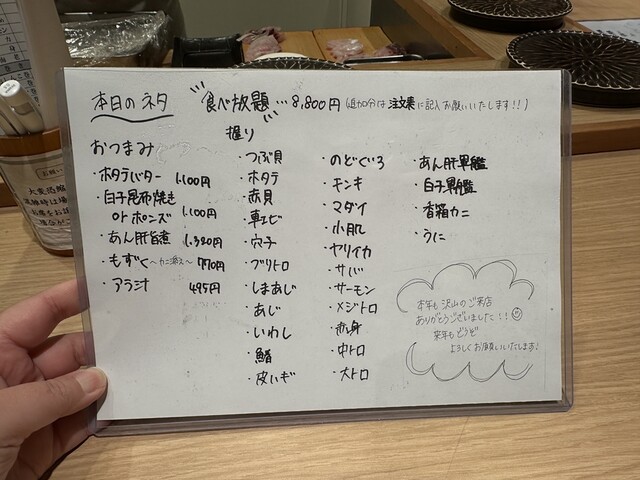 本日のネタ
食べ放題…8,800円(追加分は注文票に記入お願いいたします!!)
おつまみ
・ホタテバター 1,100円
・白子昆布焼き
orポンズ 1,100円
・あん肝旨煮 1,320円
・もずく〜カニ添え〜 770円
・アラ汁 495円
握り
・つぶ貝
・ホタテ
・赤貝
・車エビ
・穴子
・ブリトロ
・しまあじ
・あじ
・いわし
・鰆
・皮ハギ
・のどぐろ
・キンキ
・マダイ
・小肌
・ヤリイカ
・サバ
・サーモン
・メジトロ
・赤身
・中トロ
・大トロ
・あん肝軍艦
・白子軍艦
・香箱カニ
・うに
本年も沢山のご来店
ありがとうございました!!
来年もどうぞ
よろしくお願いいたします!
お願い